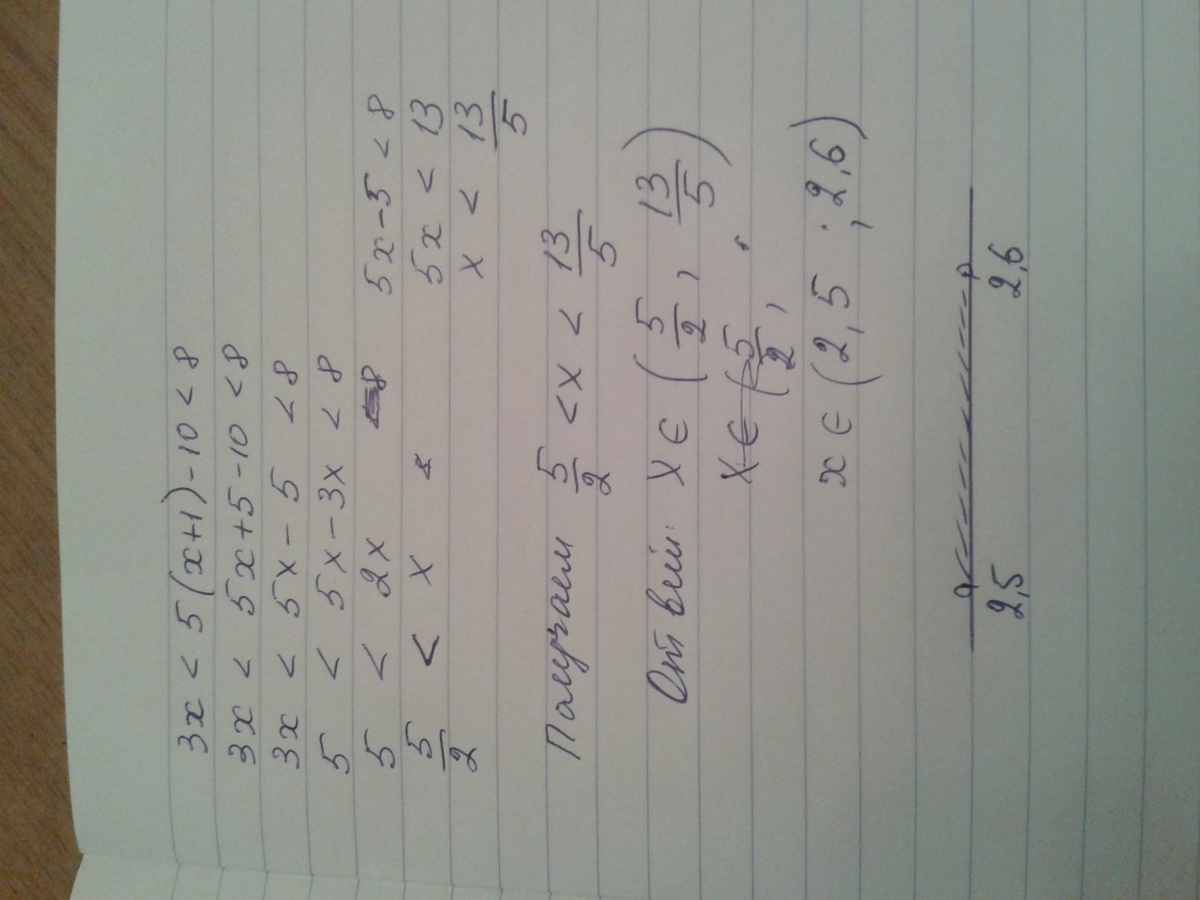 3x < 5(x+1)-10 < 8
3x < 5x+5-10 < 8
3x < 5x-5 < 8
5 < 5x-3x < 8
5 < 2x 5x-5 < 8
5/2 < x 5x < 13
x < 13/5
Получаем 5/2 < x < 13/5
Ответ: x ∈ (5/2, 13/5)
x ∈ (5/2,
x ∈ (2,5 ; 2,6)
2,5 2,6